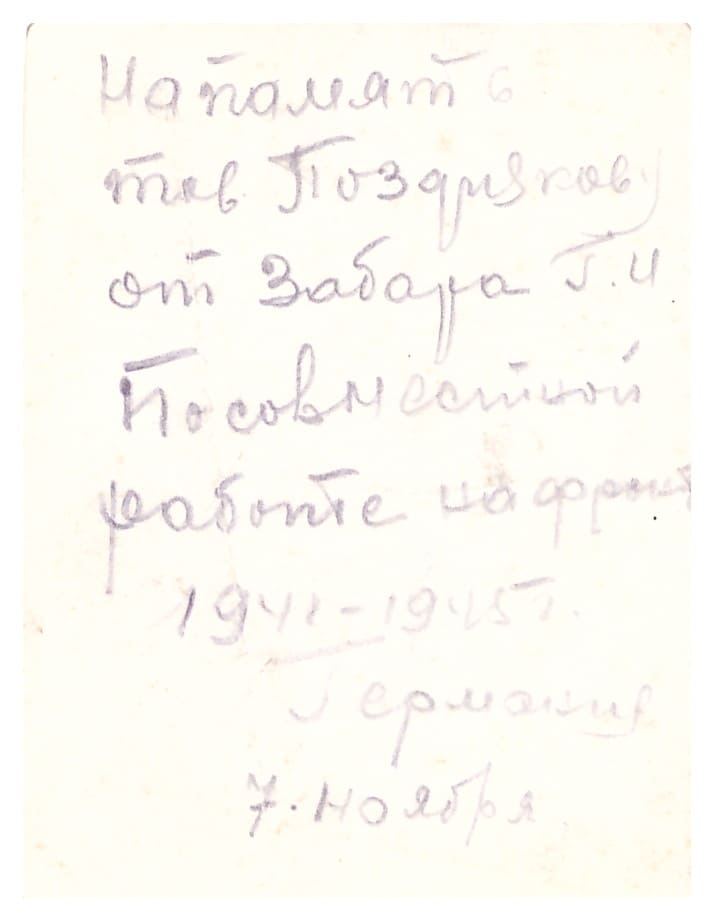 На память
тов Позднякову
от Забара Г.И
По совместной
работе на фронт
1941-1945г.
Германия
7. ноября